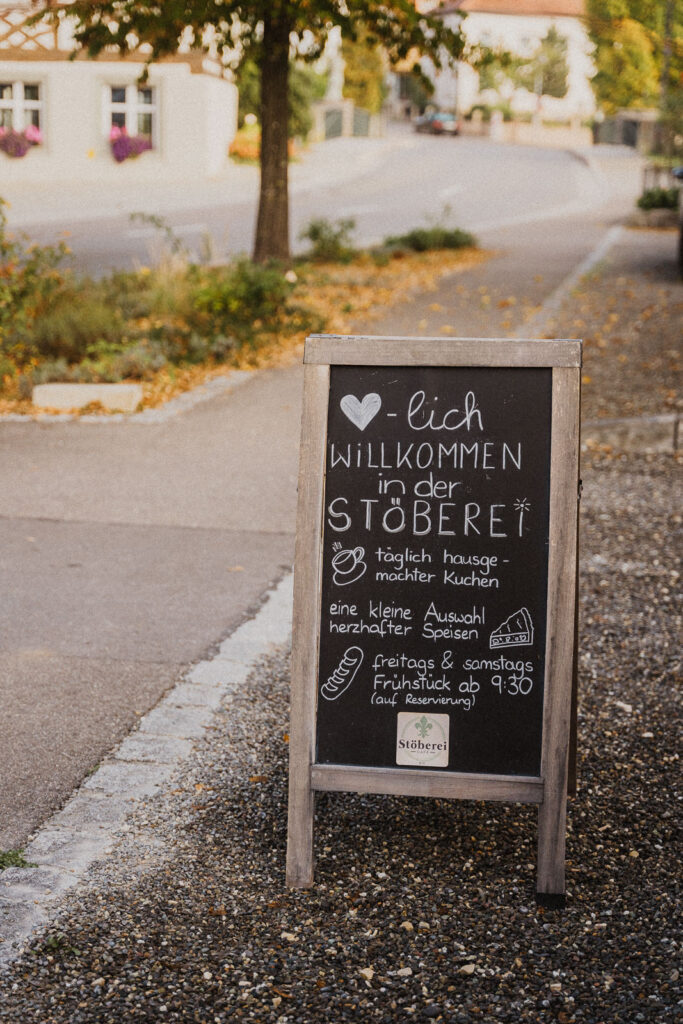 -lich
WILLKOMMEN
in der
STÖBEREI
täglich hausge-
machter Kuchen
eine kleine Auswahl
herzhafter Speisen
freitags & samstags
Frühstück ab 9:30
(auf Reservierung)
Stöberei
CAFÉ